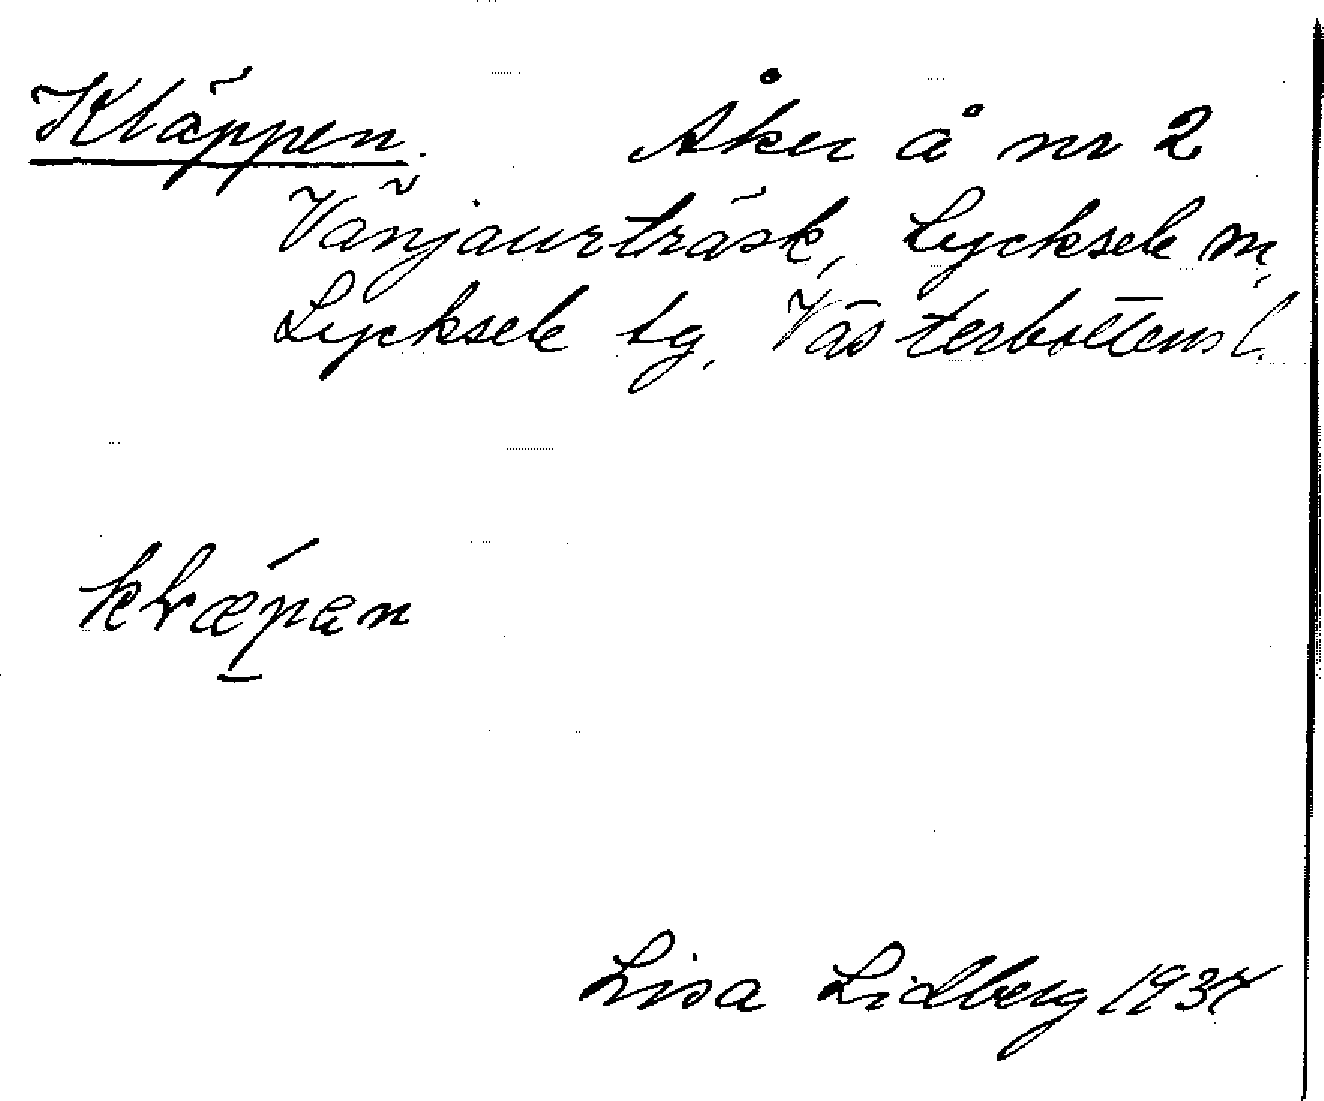 Kläppen. Åker å nr 2
Vänjaurträsk, Lycksele m,
Lycksele sg, Västerbottens l.
klæpan
Lisa Lidberg 1937